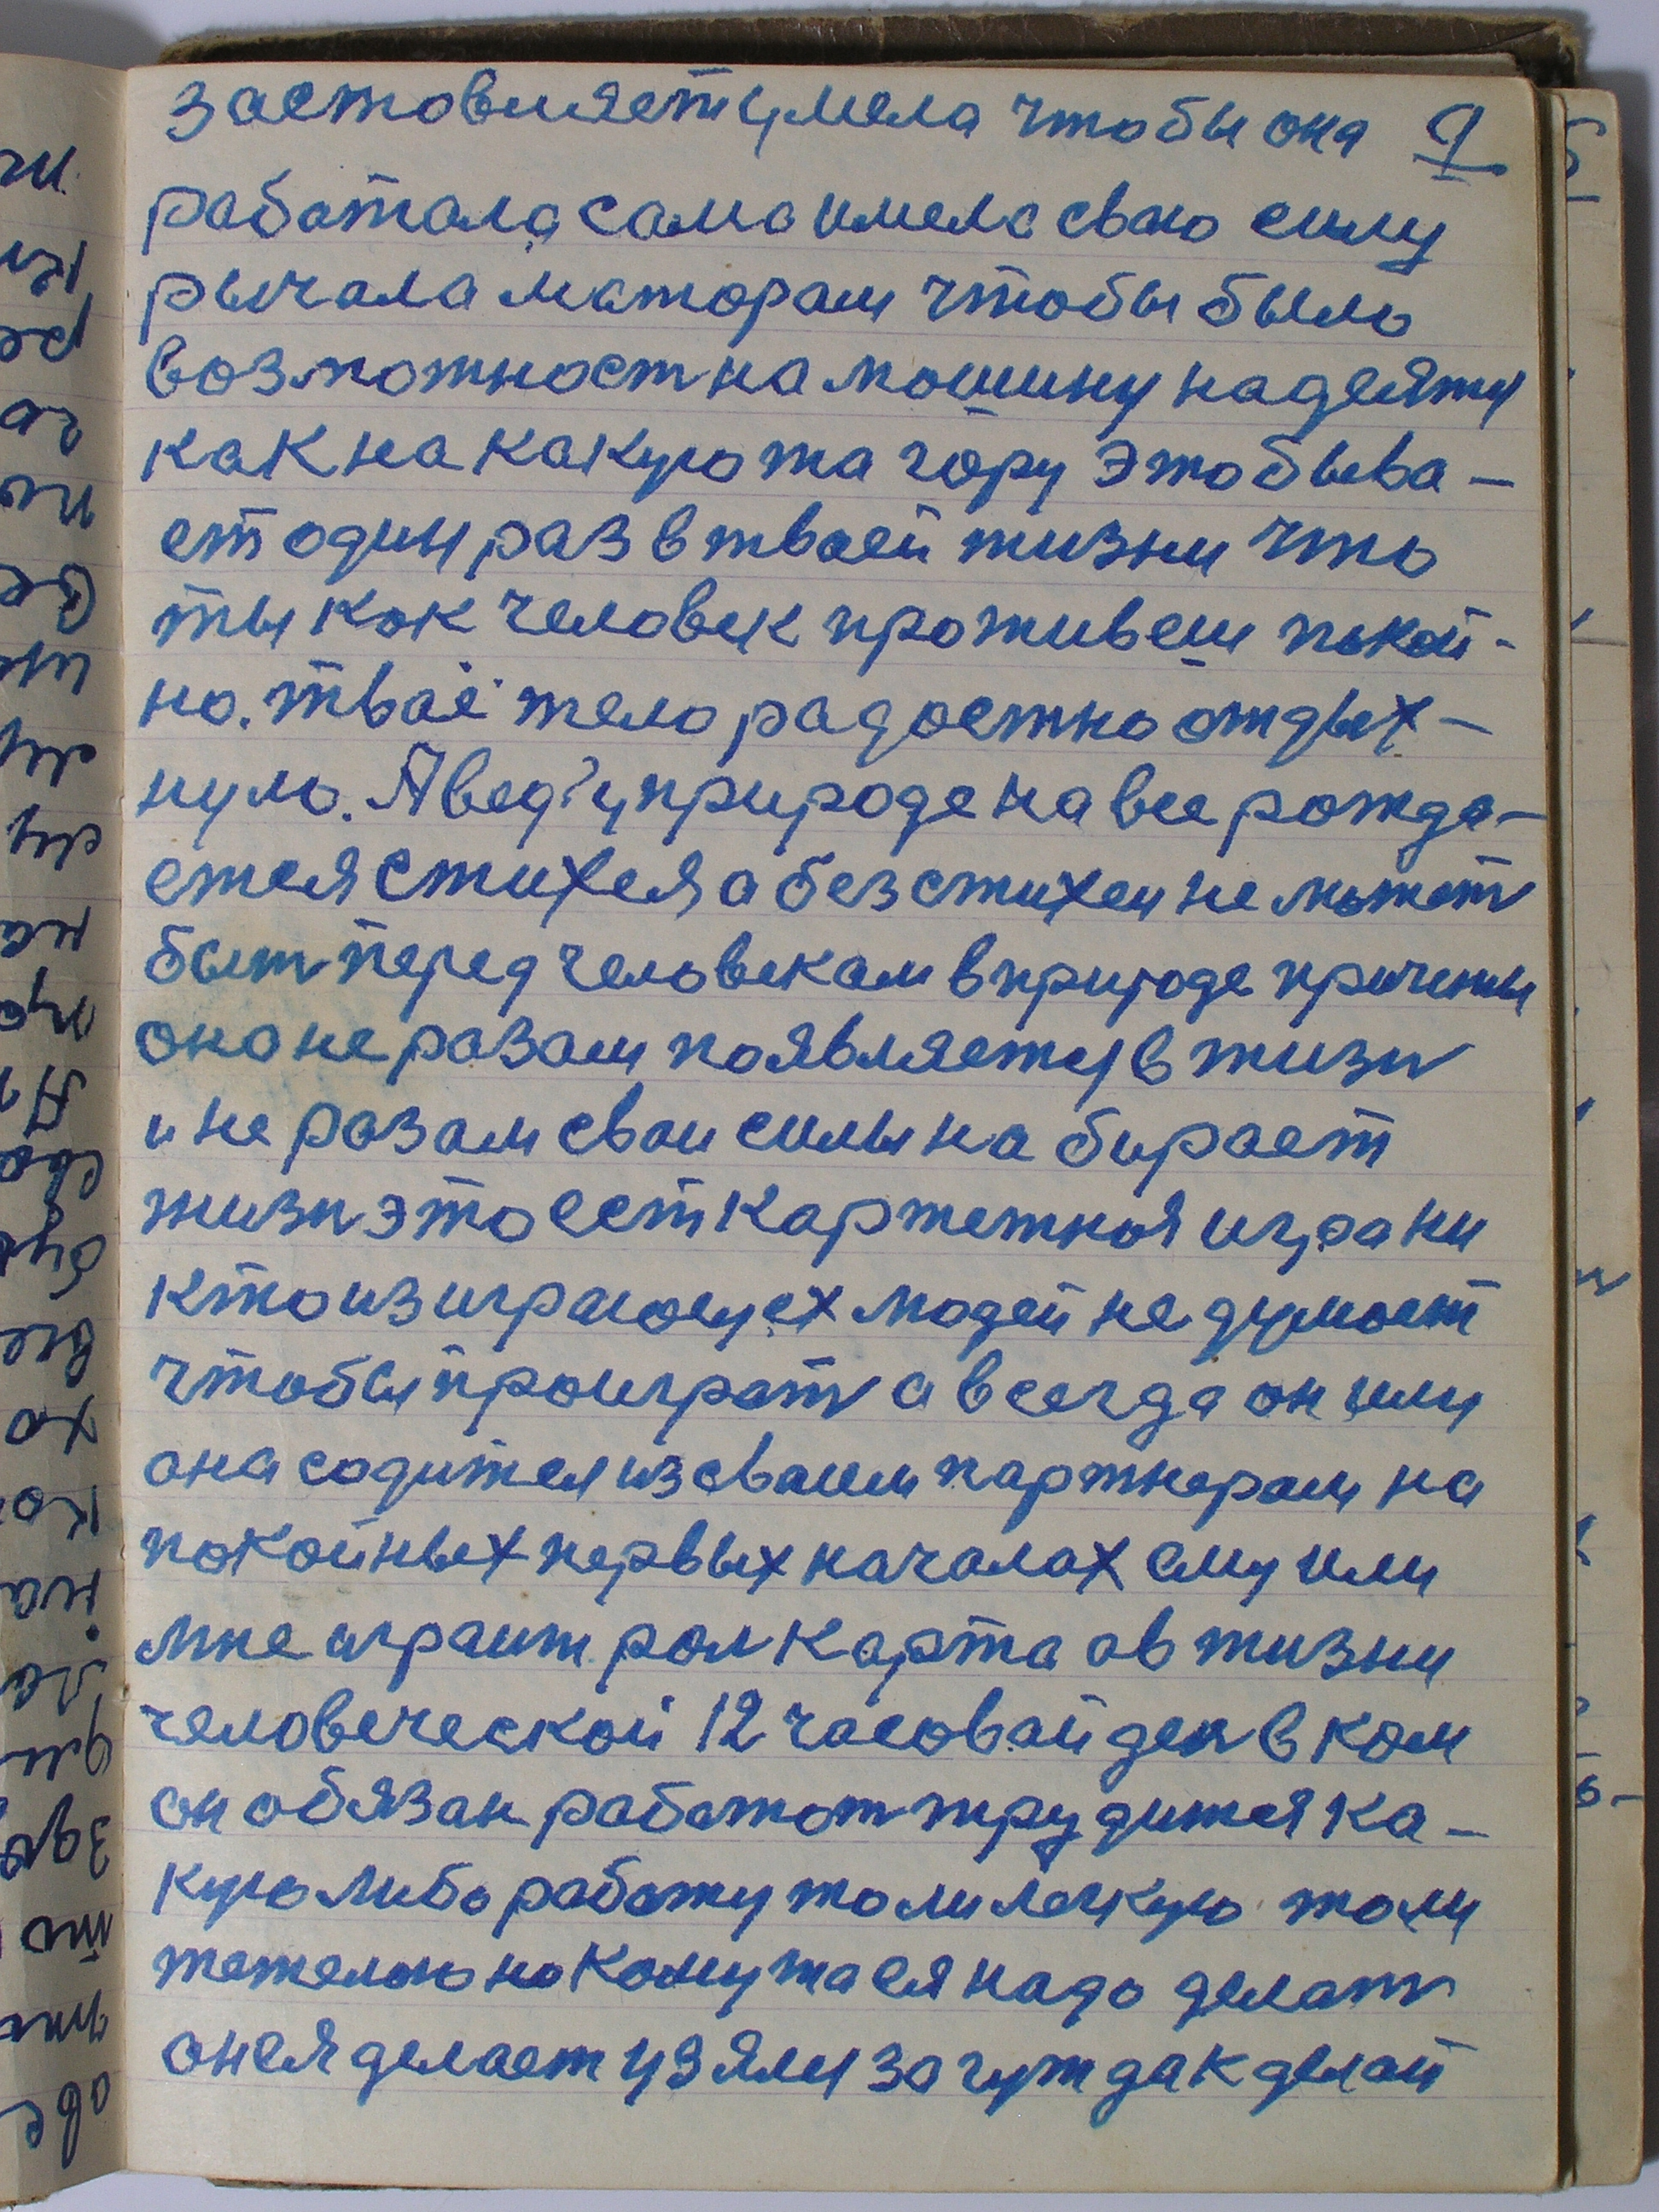 застовляет умела чтобы она 9
работала сама имела сваю силу
рычала маторам чтобы было
возможност на мошину надеятц
как на какую та гору Это быва-
ет один раз в тваей жизни что
ты как человек проживеш покой-
но. тваё тело радостно отдых-
нуло. А вед у природе на все рожда-
ется стихея а без стихеи не может
быт перед человекам в природе причины
она не разам появляетц в жизн
и не разам сваи силы на бирает
жизн это ест картежноя игра ни
кто из играющех людей не думает
чтобы проиграт а всегда он или
она садится из сваим партнерам на
покойных первых началах ему или
мне играит рол карта а в жизни
человеческой 12 часовай ден в ком
он обязан работат трудится ка-
кую либо работу то ли легкую то ли
тежелою но кому та ея надо делат
он ея делает узялся за гуж дак делай